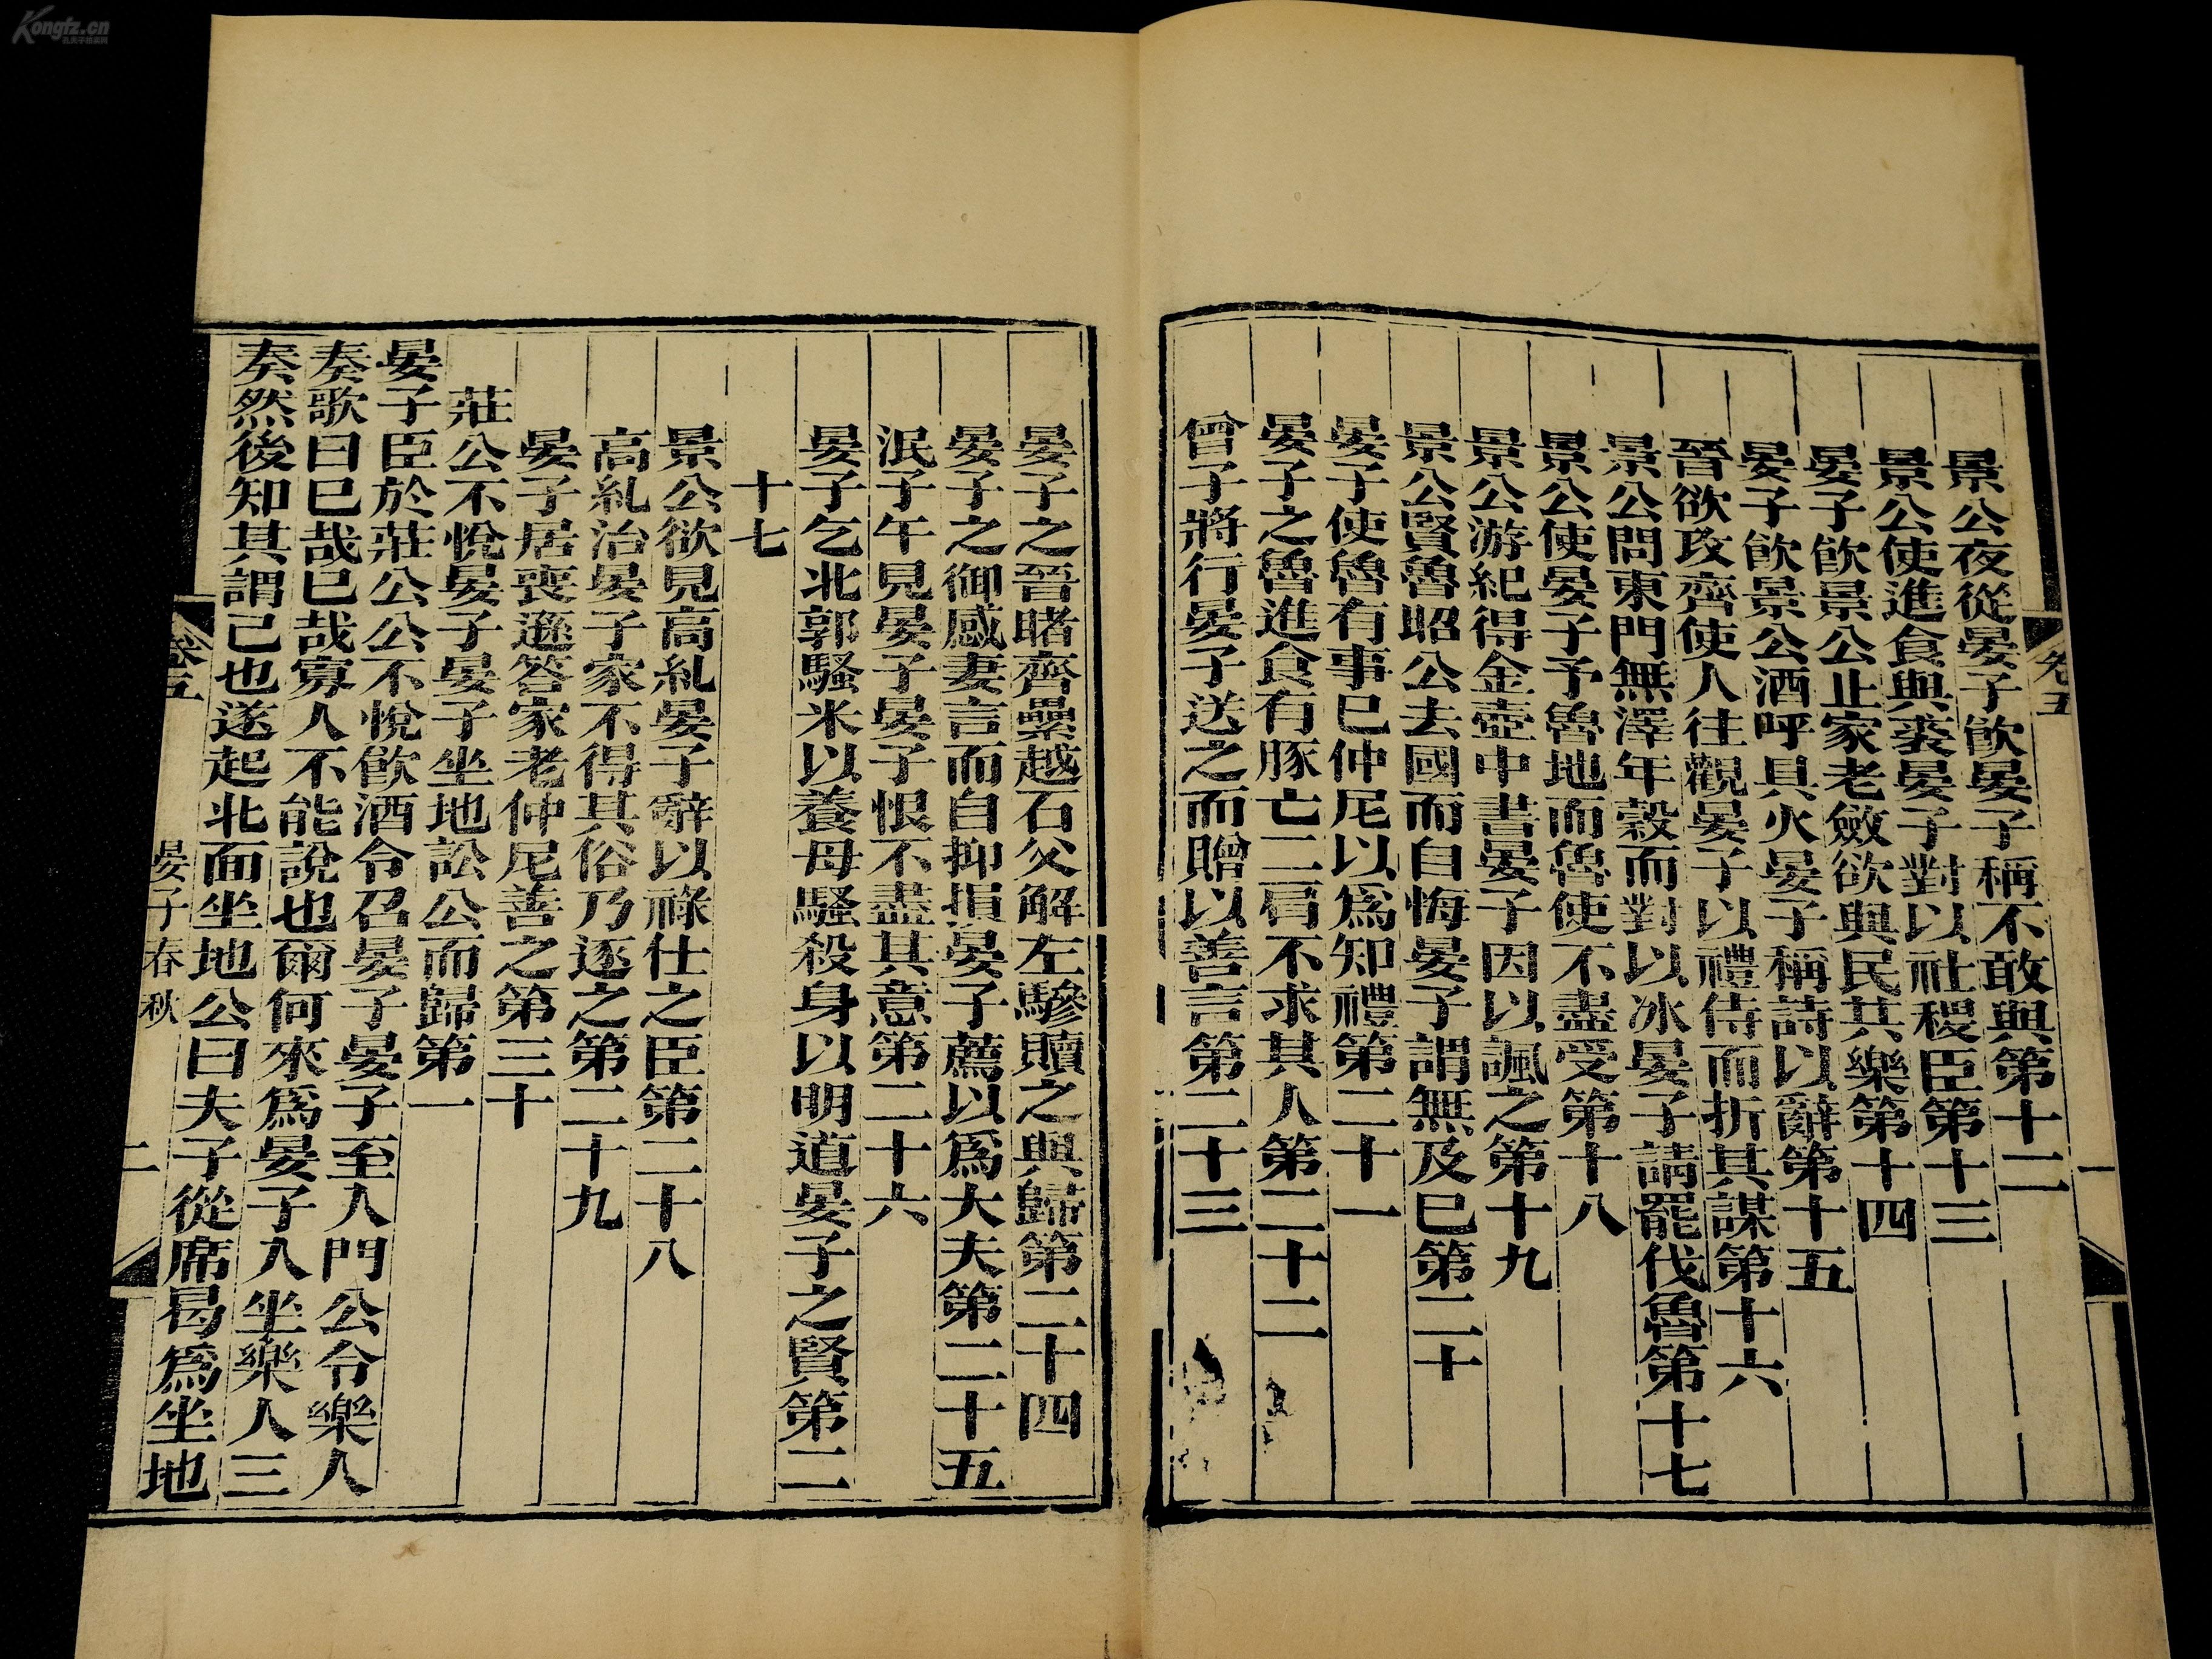 Kongfz.cn
卷五
一
景公夜從晏子飮晏子稱不敢與第十二
景公使進食與裘晏子對以社稷臣第十三
晏子飮景公止家老斂欲與民共樂第十四
晏子飮景公酒呼具火晏子稱詩以辭第十五
晉欲攻齊使人往觀晏子以禮侍而折其謀第十六
景公問東門無澤年穀而對以冰晏子請罷伐魯第十七
景公使晏子予魯地而魯使不盡受第十八
景公游紀得金壺中書晏子因以諷之第十九
景公賢魯昭公去國而自悔晏子謂無及已第二十
晏子使魯有事已仲尼以爲知禮第二十一
晏子之魯進食有豚亡二肩不求其人第二十二
曾子將行晏子送之而贈以善言第二十三
晏子之晉睹齊纍越石父解左驂贖之與歸第二十四
晏子之御感妻言而自抑損晏子薦以爲大夫第二十五
泯子午見晏子晏子恨不盡其意第二十六
晏子乞北郭騷米以養母騷殺身以明道晏子之賢第二
十七
景公欲見高糺晏子辭以祿仕之臣第二十八
高糺治晏子家不得其俗乃逐之第二十九
晏子居喪遜答家老仲尼善之第三十
莊公不悅晏子晏子坐地訟公而歸第一
晏子臣於莊公公不悅飮酒令召晏子晏子至入門公令樂人
奏歌曰已哉已哉寡人不能說也爾何來爲晏子入坐樂人三
奏然後知其謂己也遂起北面坐地公曰夫子從席曷爲坐地
卷五
晏子春秋
二